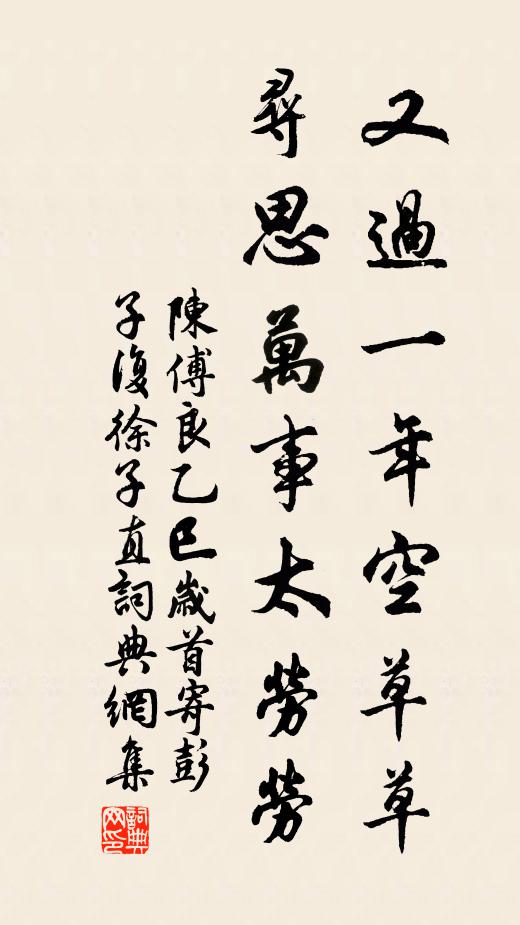 又過一年空草草
尋思萬事太勞勞
陳傅良乙巳歲首寄彭
子復徐子直詞典網集
詞典
网印